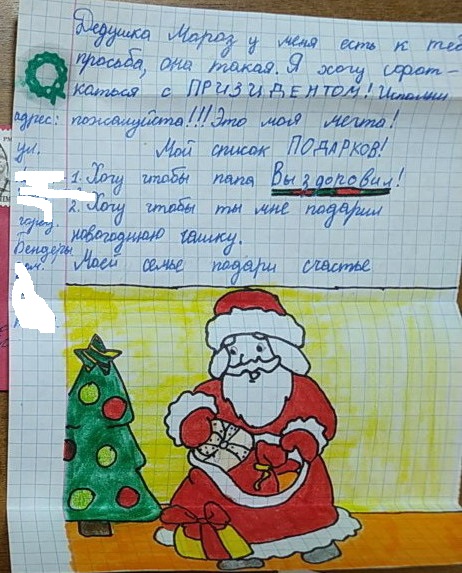 Дедушка Мороз у меня есть к теб
просьба, она такая. Я хочу сфорт-
каться с ПРИЗИДЕНТОМ! Исполни
адрес: пожалуйста!!! Это моя мечта!
ул. Мой список ПОДАРКОВ!
1. Хочу чтобы папа Выздоровил!
2. Хочу чтобы ты мне подарил
город. новогоднюю чашку.
Бендеры
Моей семье подари счастье